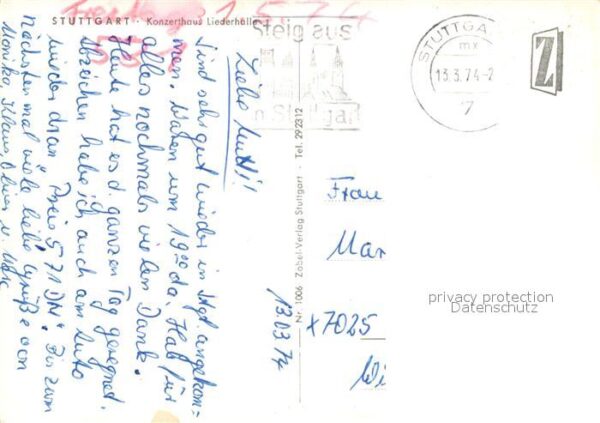 STUTTGART · Konzerthaus Liederhalle
1574
Steig aus
in Stuttgart
STUTTGART
mx
13.3.74-2
7
Z
Liebe Mutti!
Sind sehr gut wieder in Stgt angekom=
men. Waren um 19⁰⁰ da. Hab für
alles nochmals vielen Dank.
Heute hat es d. ganzen Tag geregnet.
Abzeichen habe ich auch am Auto
wieder dran. Preis 5,71 DM. Bis zum
nächsten mal viele liebe Grüße von
Monika, Klaus, Oliver u.
13.03.74
Nr. 1006 Zobel-Verlag Stuttgart - Tel. 292312
Frau
Mar
x7025
Wi
privacy protection
Datenschutz